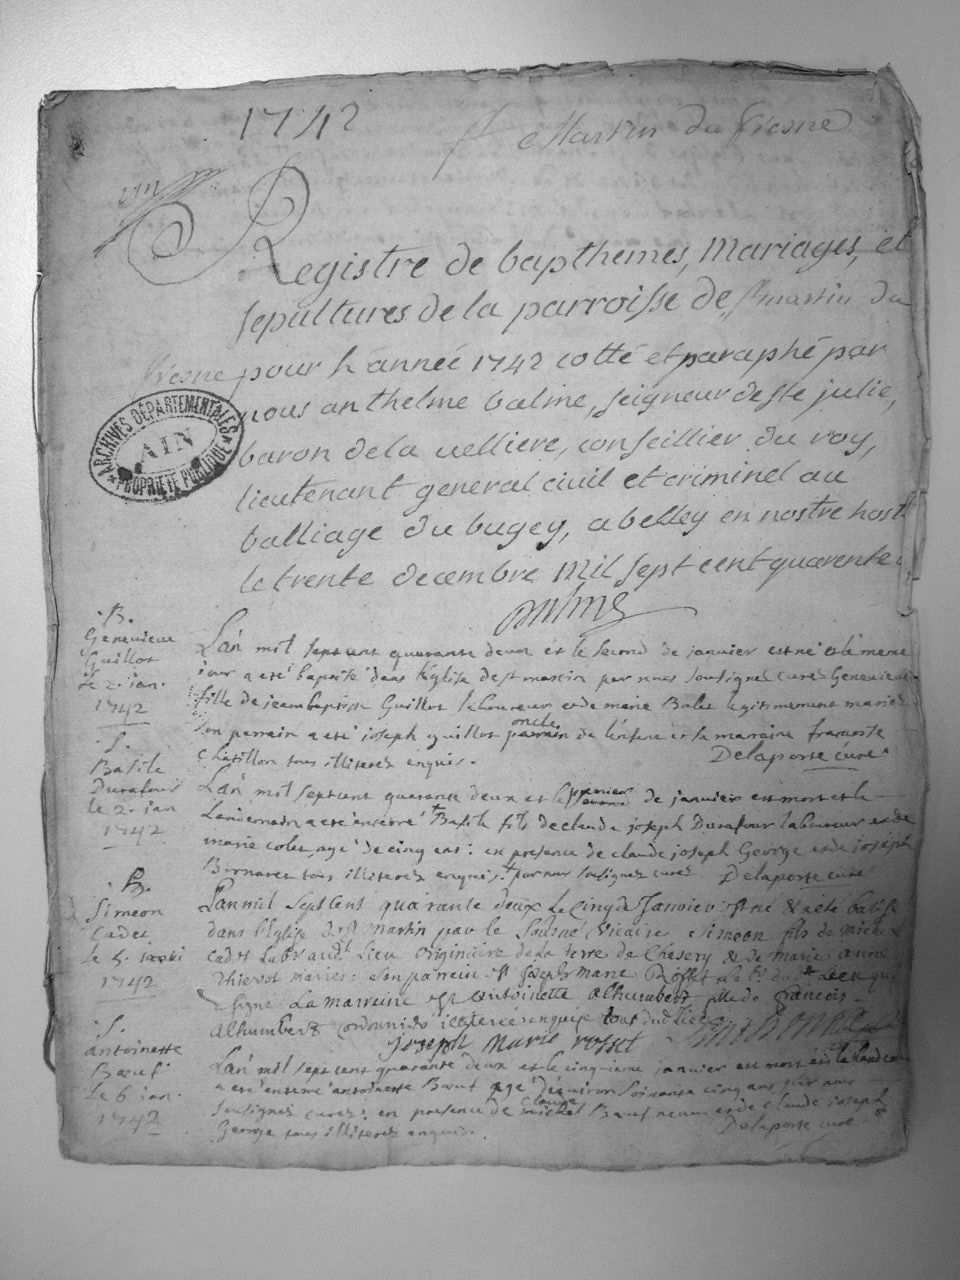 1742
St Martin du fresne
Registre de bapthemes, Mariages, et
sepultures de la parroisse de St martin du
fresne pour l'année 1742 cotté et paraphé par
nous anthelme balme, seigneur de ste julie,
baron de la uelliere, conseillier du roy,
lieutenant general ciuil et criminel au
balliage du bugey, a belley en nostre host
le trente decembre Mil sept cent quarente
ARCHIVES DÉPARTEMENTALES
AIN
PROPRIÉTÉ PUBLIQUE
balme
B.
Geneuieue
Guillot
le 2. jan.
1742
L'an mil sept cent quarante deux et le second de januier est né et le mene
iour a eté baptisé dans l'eglise de st martin par nous soussigné curé Geneuieue
fille de jean baptiste Guillot laboureur et de marie Balet legitimement mariés
son parrain a eté joseph guillot oncle de l'enfant et sa marraine francoise
chatillon tous illiterés enquis. Delaporte curé
S.
Basile
Durafour
le 2. jan
1742
L'an mil sept cent quarante deux et le premier de januier est mort et le
Lendemain a eté enterré Basile fils de claude joseph Durafour laboureur et de
marie colet agé de cinq ans: en presence de claude joseph George et de joseph
tous illiterés enquis. par nous soussigné curé Delaporte curé
B.
Simeon
Cadet
le 5.
1742
L'an mil sept cens quarante deux le cinq de Janvier est né & a eté batisé
dans l'Eglise de st Martin par le soussné vicaire Simeon fils de michel
Cadet Lieu originaire de la terre de Chesery & de Marie anne
Thievot mariés: son parrein st joseph marie Rosset
signé La marreine est Antoinette Alhumbert fille de francois
Alhumbert illiterée enquise tout
joseph Marie rosset
S.
antoinette
Bœuf
le 6 jan.
1742
L'an mil sept cent quarante deux et le cinquieme januier est mort et le
a eté enterré antoinette Bœuf agé d'enuiron soixante cinq ans par nous
soussigné curé: en presence de claude Bœuf neueu et de claude joseph
George tous illiterés enquis. Delaporte curé